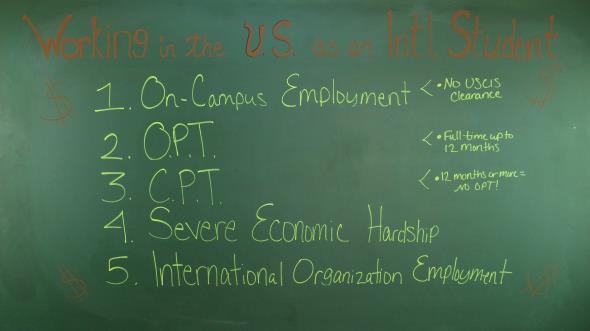 Working in the U.S. as an Int'l Student
1. On-Campus Employment < • No USCIS
Clearance
2. O.P.T. < • Full-time up to
12 months
3. C.P.T. < • 12 months or more =
NO OPT!
4. Severe Economic Hardship
5. International Organization Employment
$
$
$
$